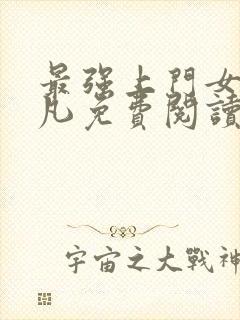 最强上門女
凡免費閱讀
宇宙之大戰神